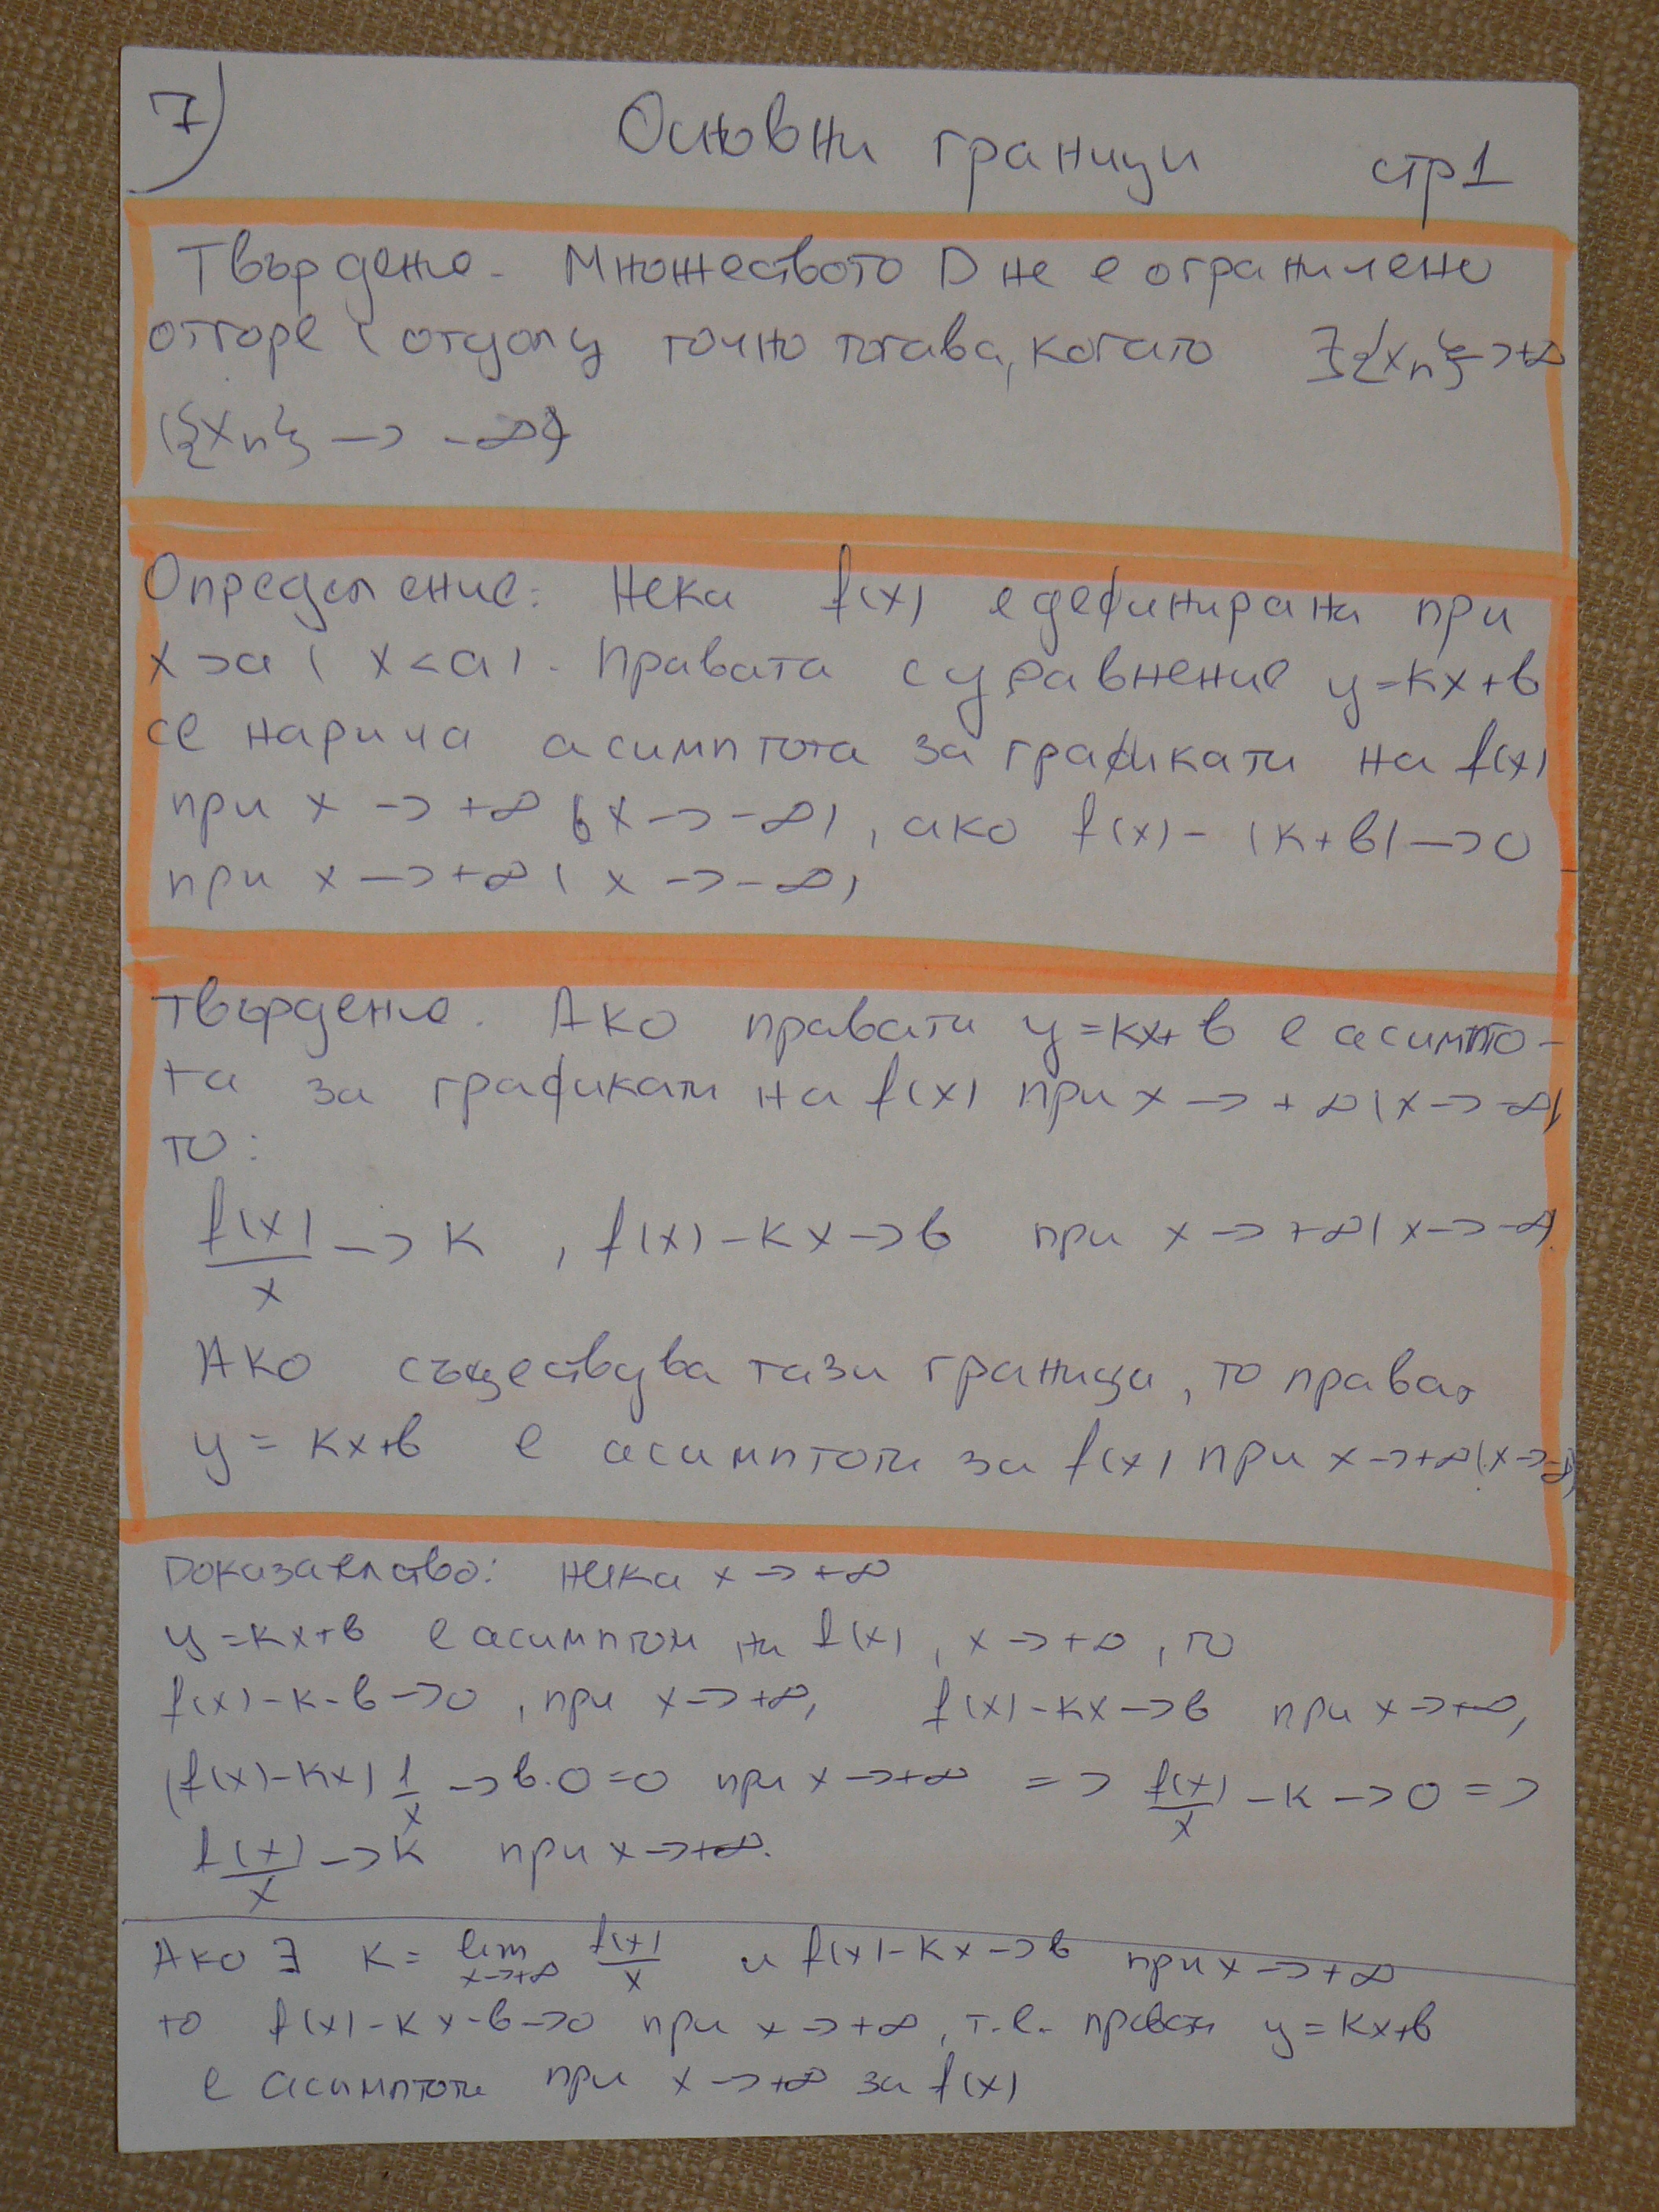 7) Основни граници стр1
Твърдение. Множеството D не е ограничено
отгоре (отдолу) точно тогава, когато ∃{xn}→+∞
({xn} → -∞)
Определение: Нека f(x) е дефинирана при
x>a (x<a). Правата с уравнение y=kx+b
се нарича асимптота за графиката на f(x)
при x → +∞ (x → -∞), ако f(x) - (k+b) → 0
при x → +∞ (x → -∞)
Твърдение. Ако правата y=kx+b е асимпто-
та за графиката на f(x) при x → +∞ (x → -∞)
то:
f(x)/x → k , f(x)-kx → b при x → +∞ (x → -∞)
Ако съществува тази граница, то правата
y = kx+b е асимптота за f(x) при x → +∞ (x → -∞)
Доказателство: Нека x → +∞
y=kx+b е асимптота на f(x), x → +∞, то
f(x)-k-b → 0, при x → +∞, f(x)-kx → b при x → +∞,
(f(x)-kx) 1/x → b.0=0 при x → +∞ => f(x)/x - k → 0 =>
f(x)/x → k при x → +∞.
Ако ∃ k = lim x→+∞ f(x)/x и f(x)-kx → b при x → +∞
то f(x)-kx-b → 0 при x → +∞, т.е. правата y = kx+b
е асимптота при x → +∞ за f(x)